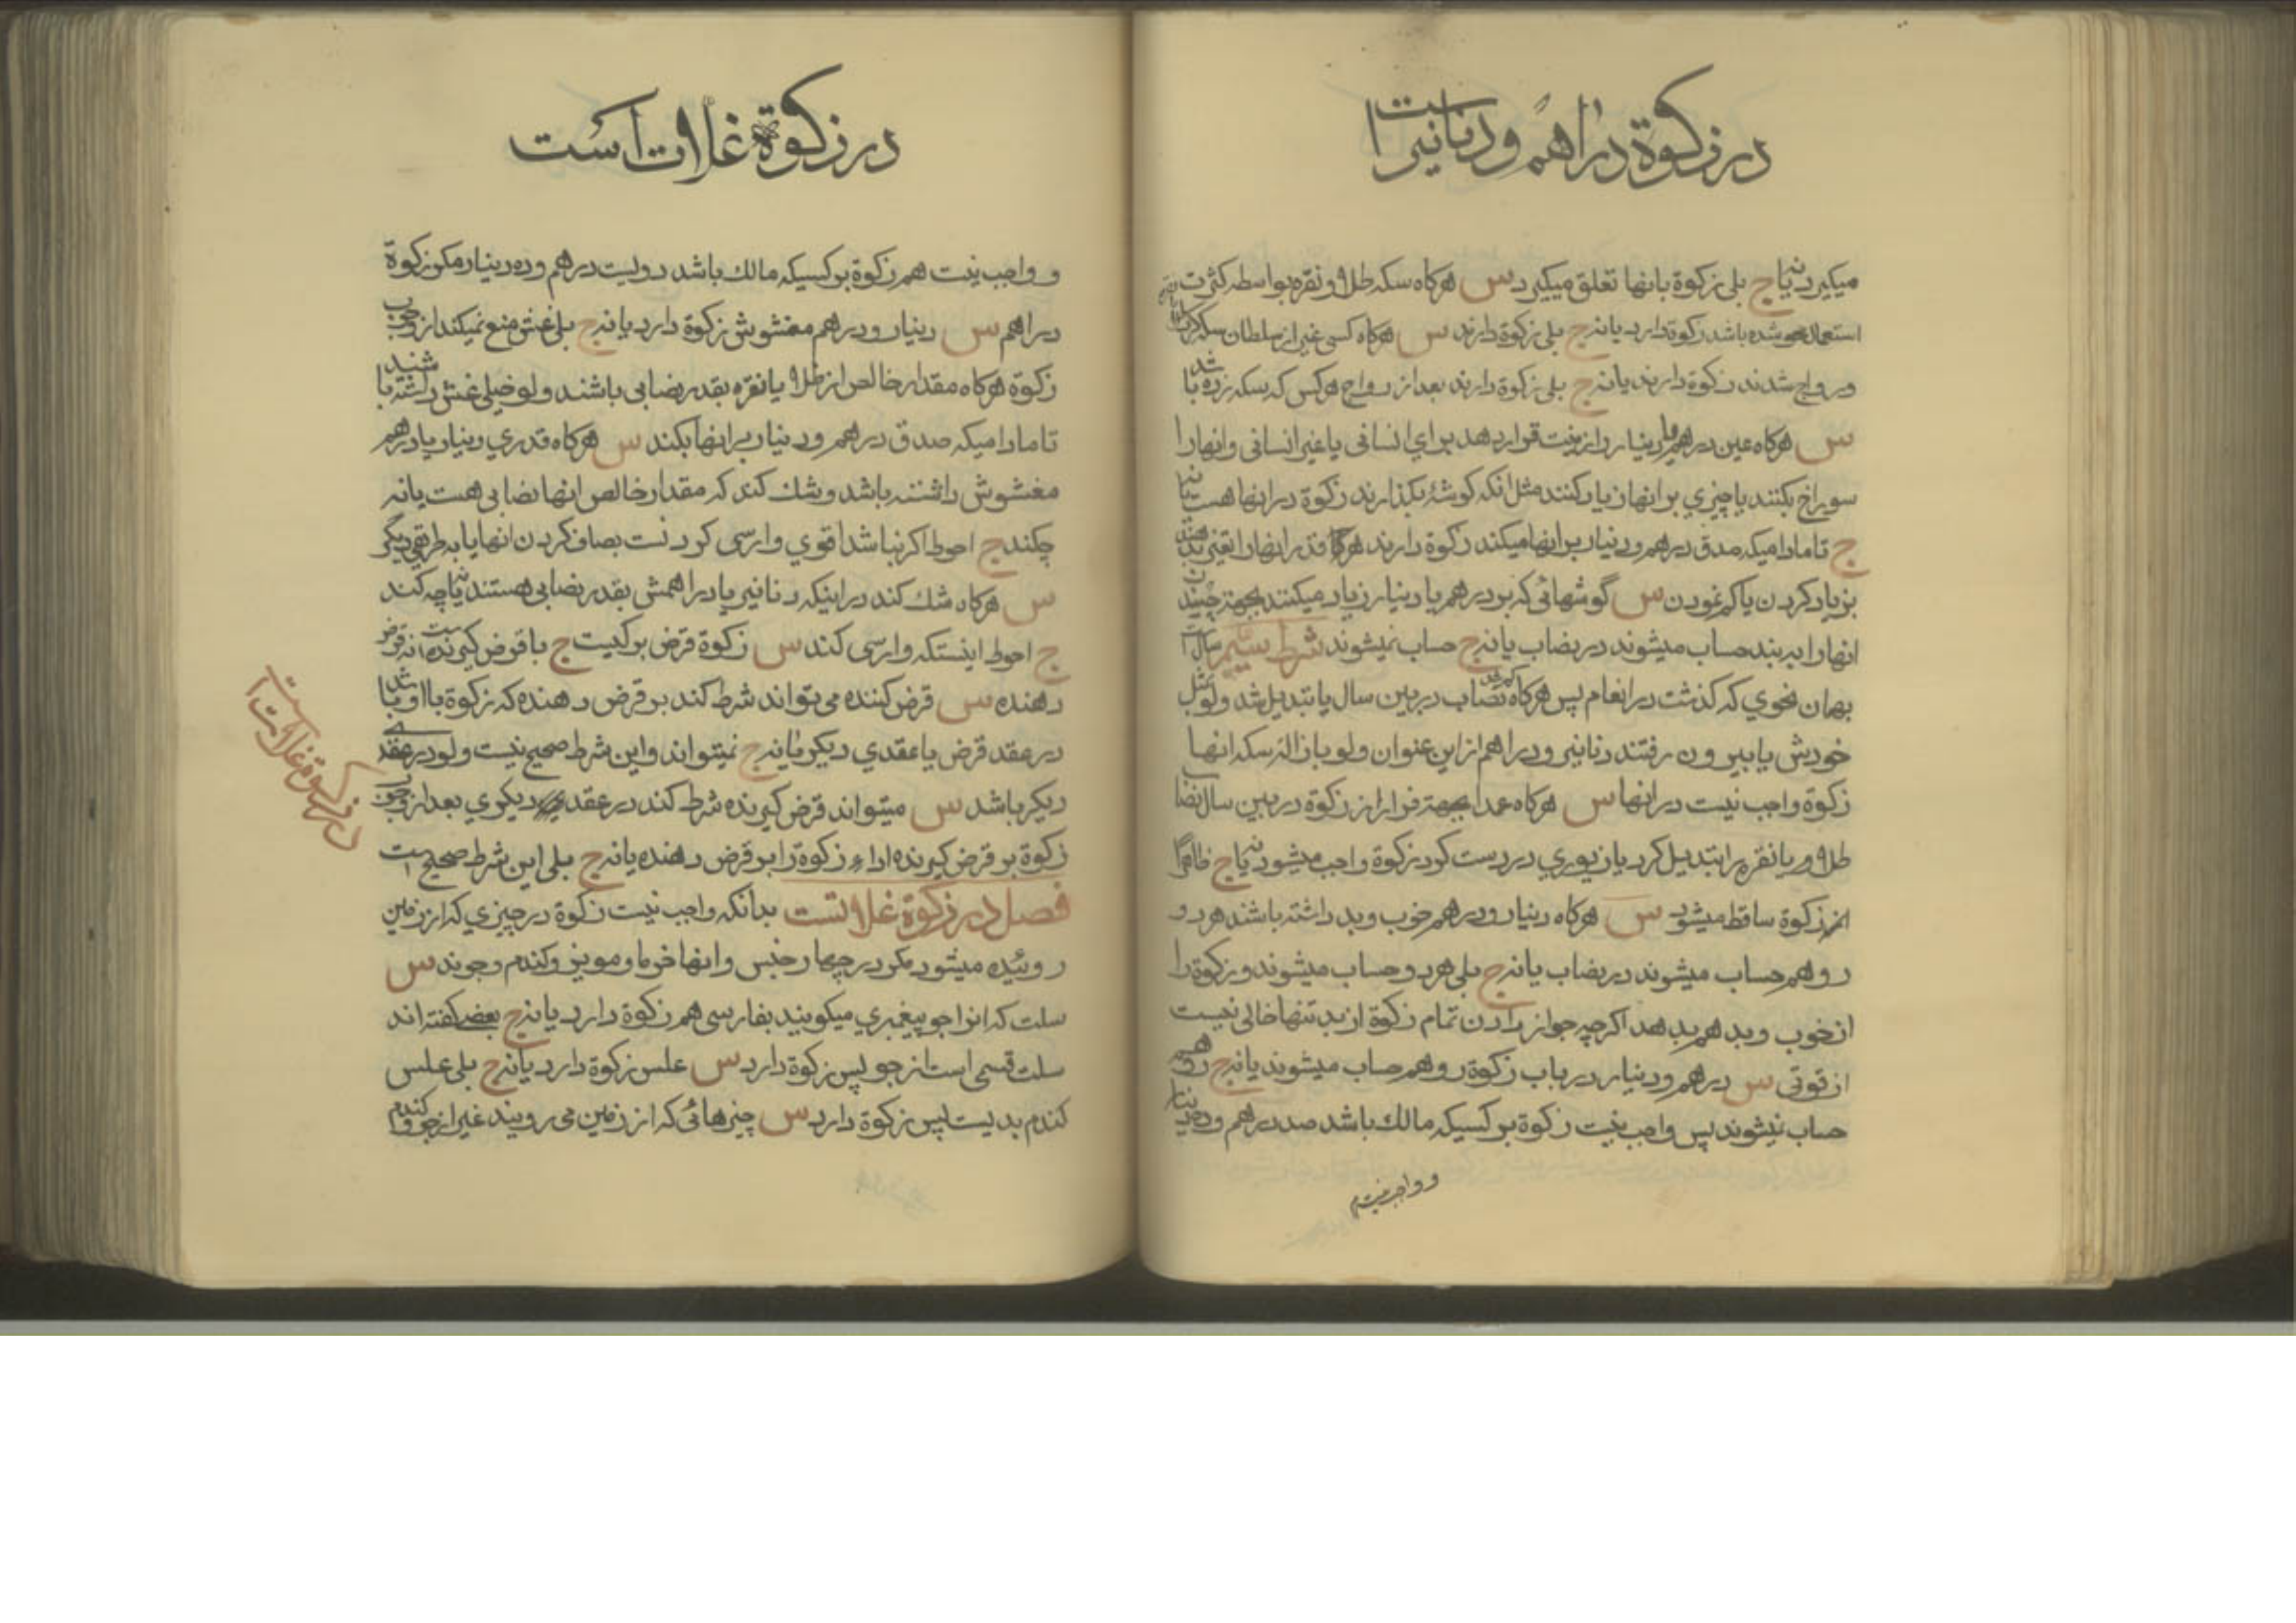 در زکوة دراهم و دنانیر است
میکیرد یانه ج بلی زکوة بانها تعلق میکیرد س هرکاه سکه طلا و نقره بواسطه کثرت
استعمال محو شده باشد زکوة دارد یا نه ج بلی زکوة دارند س هرکاه کسی غیر از سلطان سکه
و رواج شدند زکوة دارند یا نه ج بلی زکوة دارند بعد از رواج هرکس که سکه زده باشد
س هرکاه عین درهم یا دینار را زینت قرار دهد برای انسانی یا غیر انسانی و انها را
سوراخ بکنند یا چیزی بر انها زیاد کنند مثل انکه کوشهٔ بکذارند زکوة در انها هست یانه
ج تا مادامیکه صدق درهم و دینار بر انها میکنند زکوة دارند هرکاه قدر انها را تغییر ندهند
بزیاد کردن یا کم نمودن س گوشهائی که بر درهم یا دینار زیاد میکنند بجهة
انها را به بند حساب میشوند در نصاب یا نه ج حساب نمیشوند شرط سیم سال است
بهمان نحوی که کذشت در انعام پس هرکاه کم شد نصاب در بین سال یا تبدیل شد ولو بمثل
خودش یا بیرون رفتند دنانیر و دراهم از این عنوان ولو بازاله سکه انها
زکوة واجب نیست در انها س هرکاه عمدا بجهة فرار از زکوة در بین سال نصاب
طلا و یا نقره را تبدیل کرد یا زیوری درست کرد زکوة واجب میشود یانه ج ظاهرا
از زکوة ساقط میشود س هرکاه دینار و درهم خوب و بد داشته باشند هر دو
رو هم حساب میشوند در نصاب یا نه ج بلی هر دو حساب میشوند و زکوة را
از خوب و بد هم بدهد اکر چه جواز دادن تمام زکوة از بد تنها خالی نیست
از قوتی س درهم و دینار در باب زکوة رو هم حساب میشوند یا نه ج رو هم
حساب نمیشوند پس واجب نیست زکوة بر کسیکه مالک باشد صد درهم و ده دینار
و واجب نیست
در زکوة غلات است
و واجب نیست هم زکوة بر کسیکه مالک باشد دویست درهم و ده دینار مکر زکوة
دراهم س دینار و درهم مغشوش زکوة دارد یا نه ج بلی غش منع نمیکند از وجوب
زکوة هرکاه مقدار خالص از طلا یا نقره بقدر نصابی باشند ولو خیلی غش داشته باشند
تا مادامیکه صدق درهم و دینار بر انها بکند س هرکاه قدری دینار یا درهم
مغشوش داشته باشد و شک کند که مقدار خالص انها نصابی هست یا نه
چکند ج احوط اکر نباشد اقوی وارسی کردنست بصاف کردن انها یا به طریق دیگر
س هرکاه شک کند در اینکه دنانیر یا دراهمش بقدر نصابی هستند یا نه چه کند
ج احوط اینستکه وارسی کند س زکوة قرض بر کیست ج با قرض کیرنده است نه قرض
دهنده س قرض کننده می تواند شرط کند بر قرض دهنده که زکوة با او باشد
در عقد قرض یا عقدی دیکر یا نه ج نمیتواند و این شرط صحیح نیست ولو در عقدی
دیکر باشد س میتواند قرض کیرنده شرط کند در عقد دیکری بعد از وجوب
زکوة بر قرض کیرنده اداء زکوة را بر قرض دهنده یا نه ج بلی این شرط صحیح است
فصل در زکوة غلاتست بدانکه واجب نیست زکوة در چیزی که از زمین
روئیده میشود مکر در چهار جنس و انها خرما و مویز و کندم و جوند س
سلت که انرا جو پیغمبری میکویند بفارسی هم زکوة دارد یا نه ج بعضی کفته اند
سلت قسمی است از جو پس زکوة دارد س علس زکوة دارد یا نه ج بلی علس
کندم بدیست پس زکوة دارد س چیزهائی که از زمین می رویند غیر از جو و کندم
در زکوة غلات است